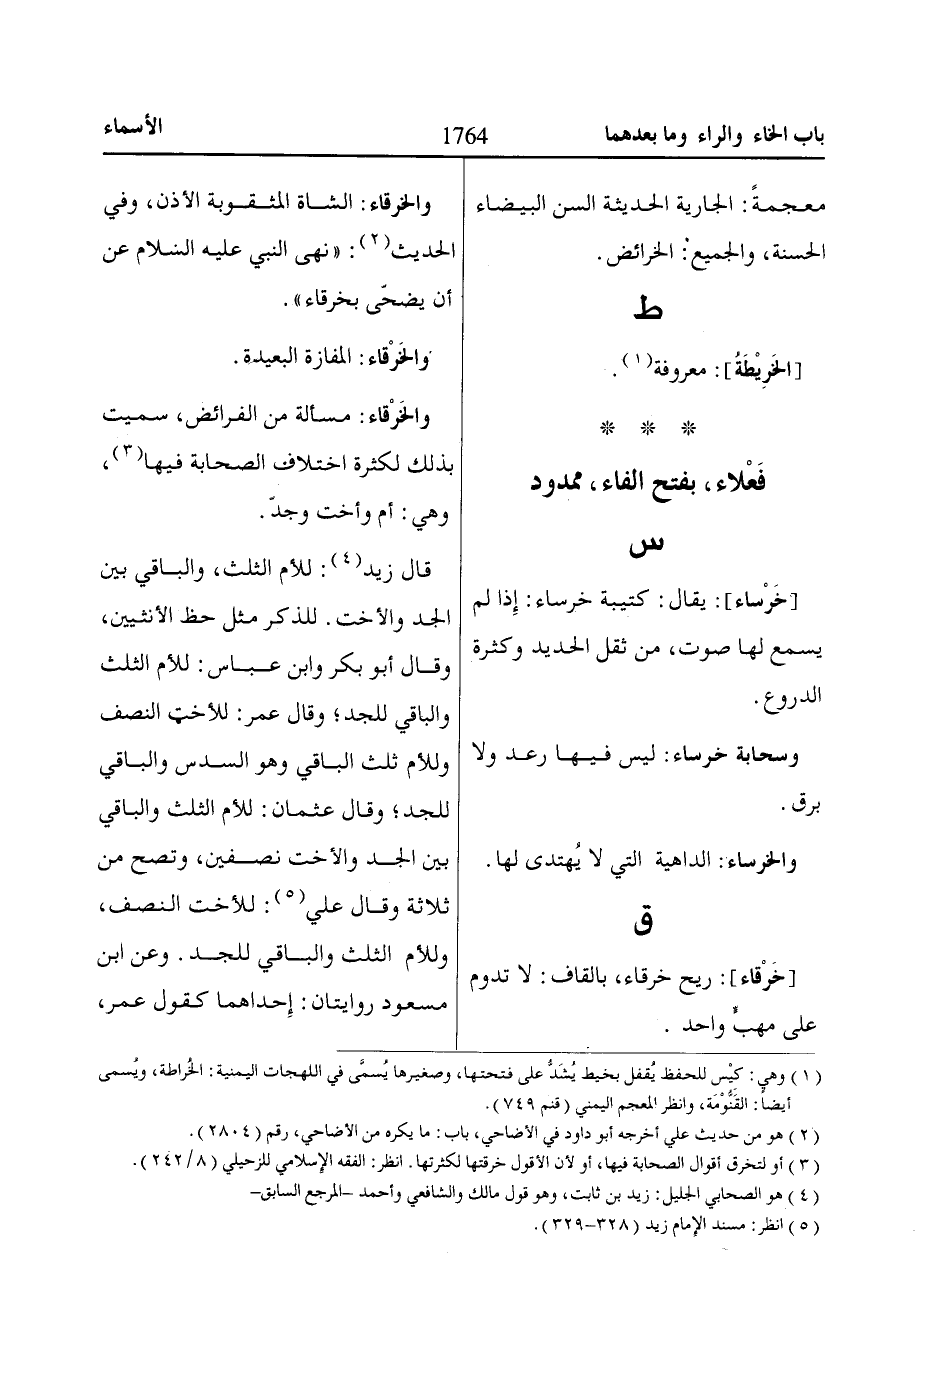 باب الخاء والراء وما بعدهما
1764
الأسماء
معجمةً: الجارية الحديثة السن البيضاء
الحسنة، والجميع: الخرائض.
ط
[الخَرِيْطَةُ]: معروفة(١).
* * *
فَعْلاء، بفتح الفاء، ممدود
س
[خَرْساء]: يقال: كتيبة خرساء: إذا لم
يسمع لها صوت، من ثقل الحديد وكثرة
الدروع.
وسحابة خرساء: ليس فيها رعد ولا
برق.
والخرساء: الداهية التي لا يُهتدى لها.
ق
[خَرْقاء]: ريح خرقاء، بالقاف: لا تدوم
على مهبٍّ واحد.
والخرقاء: الشاة المثقوبة الأذن، وفي
الحديث(٢): «نهى النبي عليه السلام عن
أن يضحّى بخرقاء».
والخَرْقاء: المفازة البعيدة.
والخَرْقاء: مسألة من الفرائض، سميت
بذلك لكثرة اختلاف الصحابة فيها(٣)،
وهي: أم وأخت وجدّ.
قال زيد(٤): للأم الثلث، والباقي بين
الجد والأخت. للذكر مثل حظ الأنثيين،
وقال أبو بكر وابن عباس: للأم الثلث
والباقي للجد؛ وقال عمر: للأخت النصف
وللأم ثلث الباقي وهو السدس والباقي
للجد؛ وقال عثمان: للأم الثلث والباقي
بين الجد والأخت نصفين، وتصح من
ثلاثة وقال علي(٥): للأخت النصف،
وللأم الثلث والباقي للجد. وعن ابن
مسعود روايتان: إحداهما كقول عمر،
(١) وهي: كيْس للحفظ يُقفل بخيط يُشَدُّ على فتحتها، وصغيرها يُسمَّى في اللهجات اليمنية: الخُراطة، ويُسمى
أيضاً: القَنُّوْمَة، وانظر المعجم اليمني (قنم ٧٤٩).
(٢) هو من حديث علي أخرجه أبو داود في الأضاحي، باب: ما يكره من الأضاحي، رقم (٢٨٠٤).
(٣) أو لتخرق أقوال الصحابة فيها، أو لأن الأقول خرقتها لكثرتها. انظر: الفقه الإسلامي للزحيلي (٢٤٢/٨).
(٤) هو الصحابي الجليل: زيد بن ثابت، وهو قول مالك والشافعي وأحمد –المرجع السابق–
(٥) انظر: مسند الإمام زيد (٣٢٨–٣٢٩).